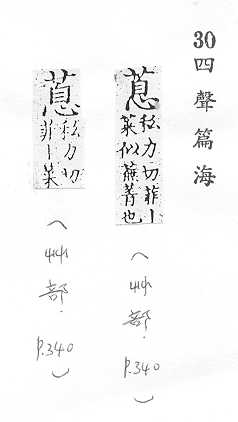 30四聲篇海
蒠
私力切菲卜
菜似蕪菁也
（艸部．
p.340）
蒠
私力切
菲卜菜
（艸部．
p.340）